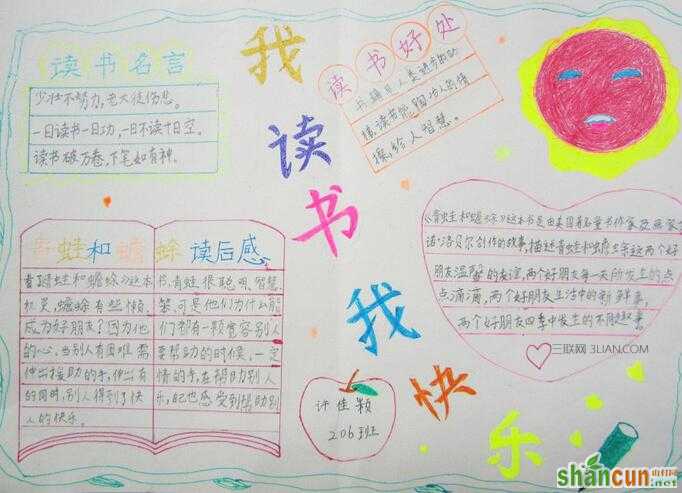 读书名言
少壮不努力,老大徒伤悲。
一日读书一日功,一日不读十日空。
读书破万卷,下笔如有神。
我
读
书
我
快
乐
读书好处
书籍是人类进步的
梯,读书能陶冶人的情
操,给人智慧。
《青蛙和蟾蜍》这本书是由美国著名童书作家
诺·洛贝尔创作的故事,描述青蛙和蟾蜍这两个好
朋友温馨的友谊,两个好朋友每一天所发生的点
点滴滴,两个好朋友生活中的新鲜事,
两个好朋友四季中发生的不同趣事。
三联网 3LIAN.COM
青蛙和蟾蜍 读后感
看青蛙和蟾蜍》这本
机灵,蟾蜍有些懒、
成为好朋友?因为他
的心,当别人有困难需
伸出援助的手,伸出有
的同时,别人得到了快
人的快乐。
书,青蛙很聪明、智慧、
笨,可是他们为什么能
们都有一颗宽容别人
要帮助的时候,一定
情的手,在帮助别人
乐,自己也感受到帮助别
许佳颖
206班
shancun
山村网
.net